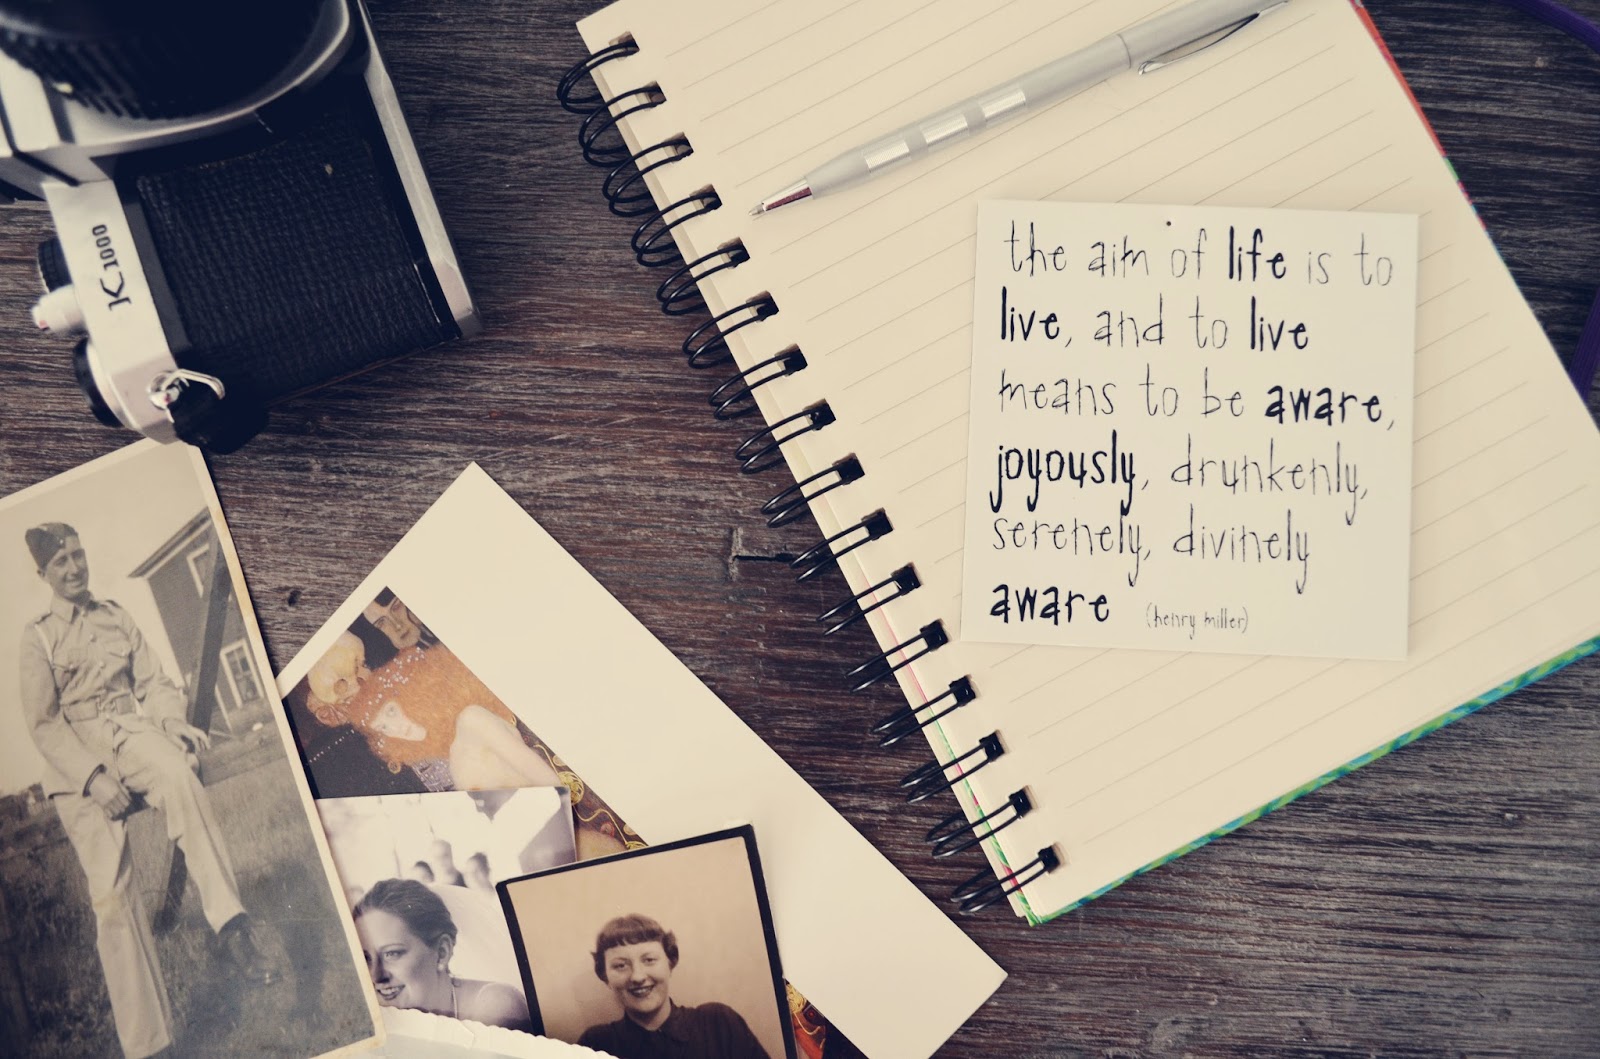 K1000
the aim of life is to
live, and to live
means to be aware,
joyously, drunkenly,
serenely, divinely
aware (henry miller)